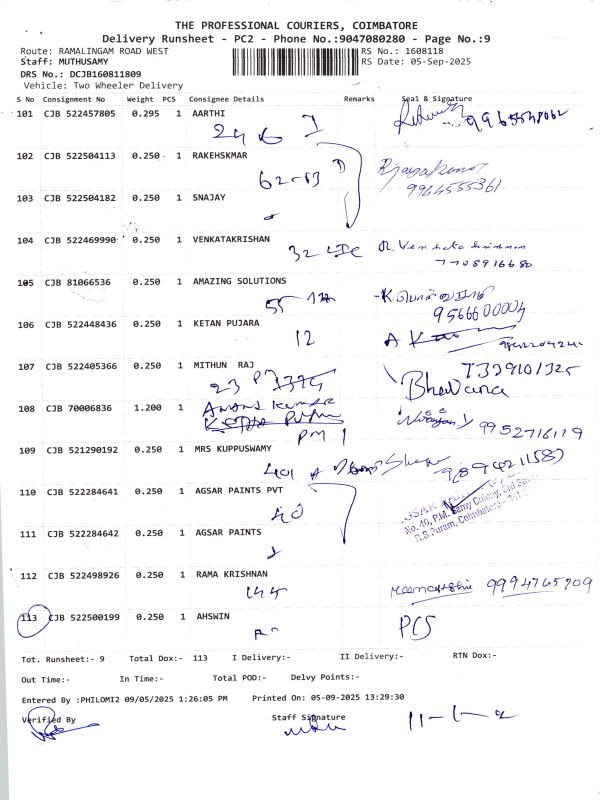 THE PROFESSIONAL COURIERS, COIMBATORE
Delivery Runsheet - PC2 - Phone No.:9047080280 - Page No.:9
Route: RAMALINGAM ROAD WEST RS No.: 1608118
Staff: MUTHUSAMY RS Date: 05-Sep-2025
DRS No.: DCJB160811809
Vehicle: Two Wheeler Delivery
S No Consignment No Weight PCS Consignee Details Remarks Seal & Signature
101 CJB 522457805 0.295 1 AARTHI
102 CJB 522504113 0.250 1 RAKEHSKMAR
9964555361
103 CJB 522504182 0.250 1 SNAJAY
104 CJB 522469990 0.250 1 VENKATAKRISHAN
32 7708916680
105 CJB 81066536 0.250 1 AMAZING SOLUTIONS
55 9566600004
106 CJB 522448436 0.250 1 KETAN PUJARA
12
107 CJB 522405366 0.250 1 MITHUN RAJ
7339101325
23 Bhavana
108 CJB 70006836 1.200 1 Anand Kumar
9952716119
PM 1
109 CJB 521290192 0.250 1 MRS KUPPUSWAMY
401
110 CJB 522284641 0.250 1 AGSAR PAINTS PVT
40
No. 40, P.M. Samy Colony,
R.S.Puram, Coimbatore
111 CJB 522284642 0.250 1 AGSAR PAINTS
112 CJB 522498926 0.250 1 RAMA KRISHNAN
144 9994765909
113 CJB 522500199 0.250 1 AHSWIN
PCS
Tot. Runsheet:- 9 Total Dox:- 113 I Delivery:- II Delivery:- RTN Dox:-
Out Time:- In Time:- Total POD:- Delvy Points:-
Entered By :PHILOMI2 09/05/2025 1:26:05 PM Printed On: 05-09-2025 13:29:30
Verified By Staff Signature